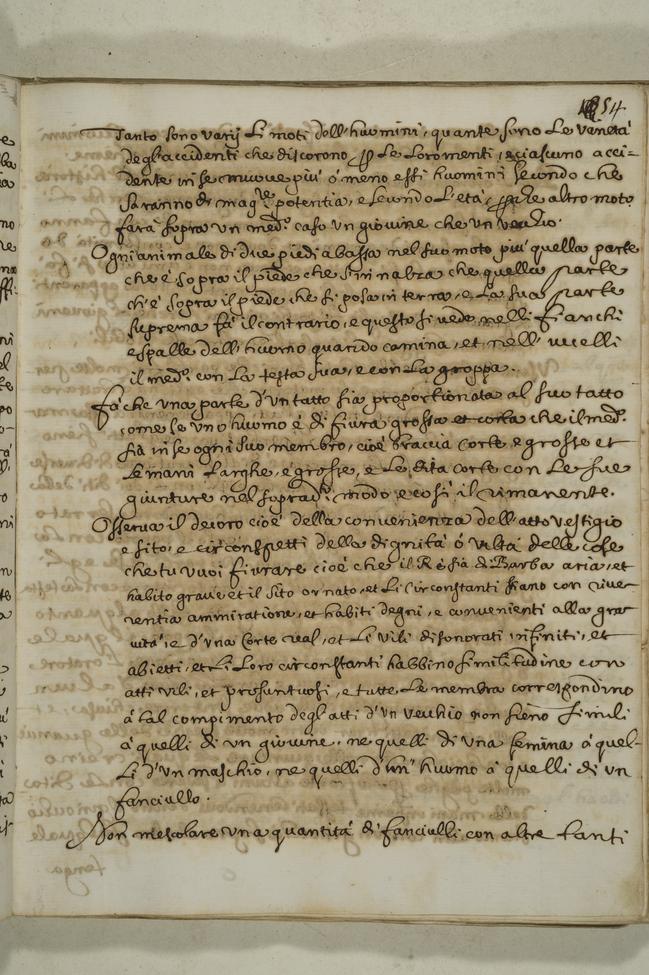 54
Tanto sono varij li moti dell'huomini, quante sono le varietá
degl'accidenti che discorono p le loro menti, e ciascuno acci-
dente in se muove piú ó meno essi huomini secondo che
saranno di magre potentia, e secondo l'etá, pche altro moto
fará sopra un medo. caso un giovine che un vecchio.
Ogni animale di due piedi abassa nel suo moto piú quella parte
che é sopra il piede che s'innalza che quella parte
ch'é sopra il piede che si posa in terra, e la sua parte
suprema fá il contrario, e questo si vede nelli fianchi
e spalle dell'huomo quando camina, et nell'uccelli
il medo. con la testa sua, e con la groppa.
Fá che una parte d'un tutto sia proportionata al suo tutto
come se uno huomo é di fiura grossa et corta che il medo.
sia in se ogni suo membro, cioé braccia corte e grosse et
le mani larghe, e grosse, e le dita corte con le sue
giunture nel sopradto. modo e cosí il rimanente.
Osserva il decoro cioé della convenienza dell'atto vestigio
e sito, e circonspetti della dignitá ó viltá delle cose
che tu vuoi fiurare cioé che il Ré sia di Barba aria, et
habito grave et il sito ornato, et li circonstanti stiano con rive-
rentia ammiratione, et habiti degni, e convenienti alla gra-
vitá, e d'una corte real, et li vili disonorati infiniti, et
abietti, et li loro circonstanti habbino similitudine con
atti vili, et prosuntuosi, e tutte le membra correspondino
á tal compimento degl'atti d'un vecchio non sieno simili
á quelli di un giovine, ne quelli di una femina á quel-
li d'un maschio, ne quelli d'un huomo á quelli di un
fanciullo.
Non mescolare una quantitá di fanciulli con altre tanti